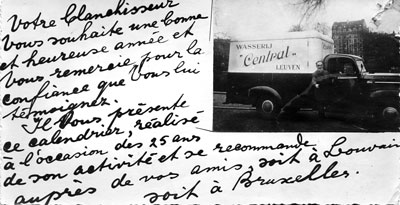 Votre Blanchisseur
vous souhaite une bonne
et heureuse année et
vous remercie pour la
confiance que vous lui
témoignez.
Il vous présente
ce calendrier, réalisé
à l'occasion des 25 ans
de son activité et se recommande
auprès de vos amis, soit à Louvain
soit à Bruxelles.
WASSERIJ
"Central"
LEUVEN